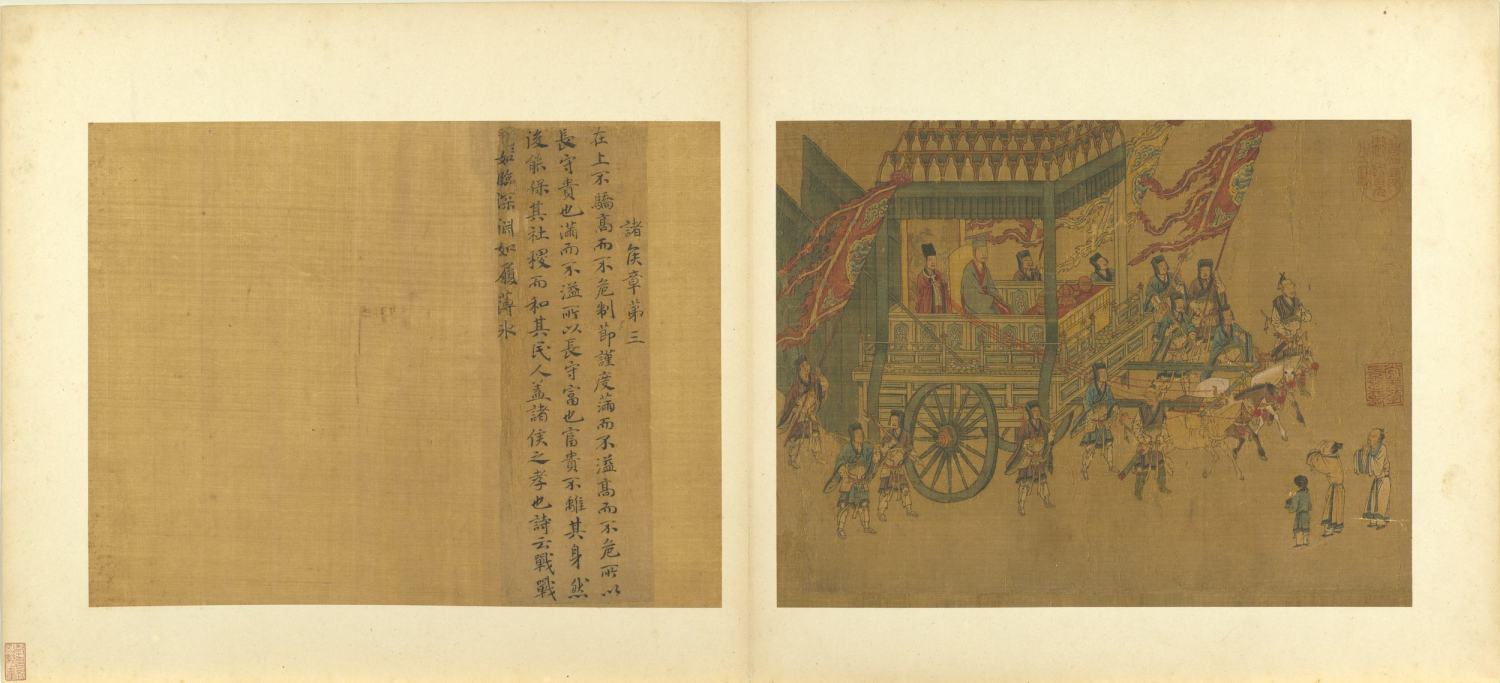 諸侯章苐三
在上不驕髙而不危制節謹度滿而不溢髙而不危所以
長守貴也滿而不溢所以長守富也富貴不離其身然
後能保其社稷而和其民人盖諸侯之孝也詩云戰戰
如臨深淵如履薄氷